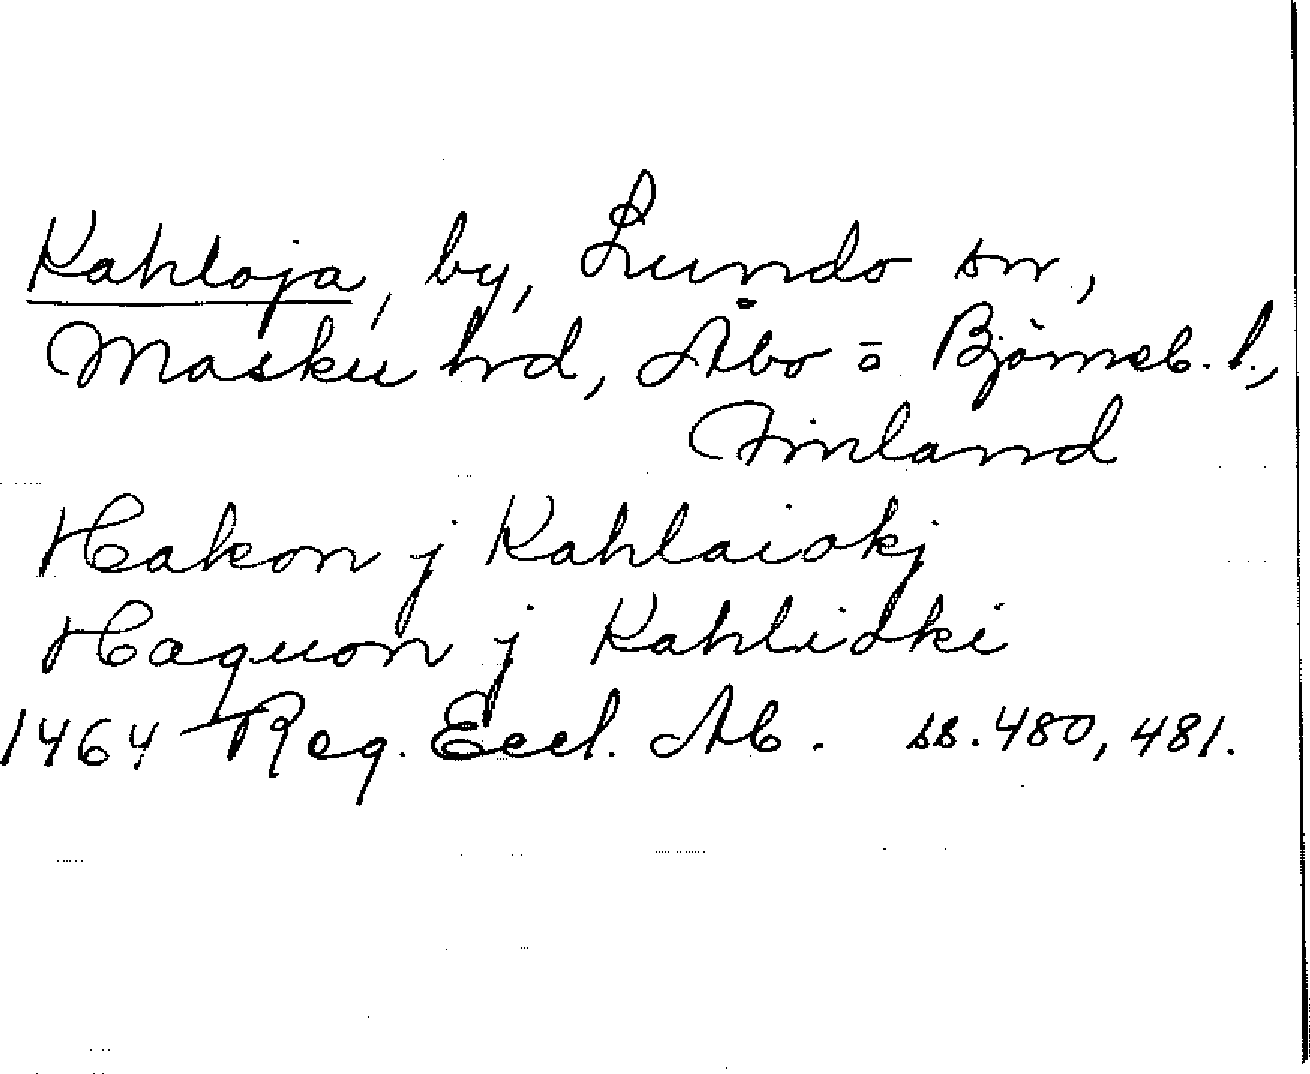 Kahloja, by, Lundo sn,
Masku hrd, Åbo = Björneb. l.,
Finland
Hakon j Kahlaiokj
Haquon j Kahlidki
1464 Reg. Eccl. Ab. ss. 480, 481.